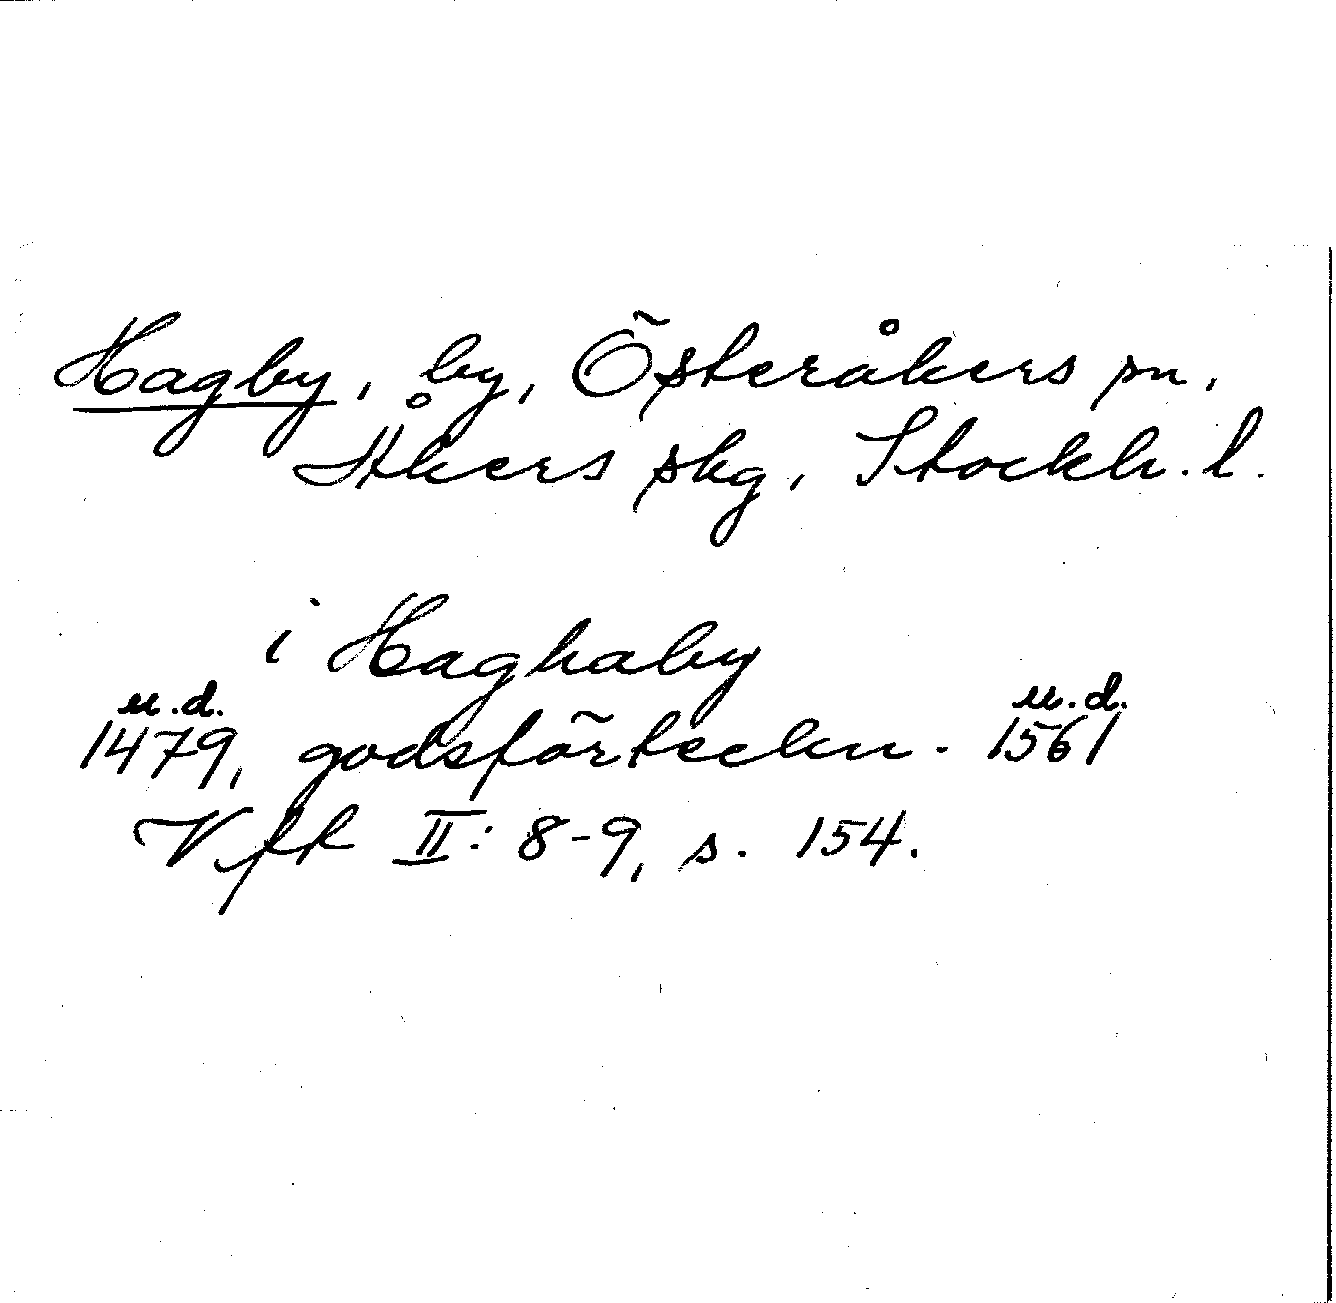 Hagby, by, Österåkers sn,
Åkers skg, Stockh. l.
i Haghaby
u.d. u.d.
1479, godsförteckn. 1561
Vfr II: 8-9, s. 154.